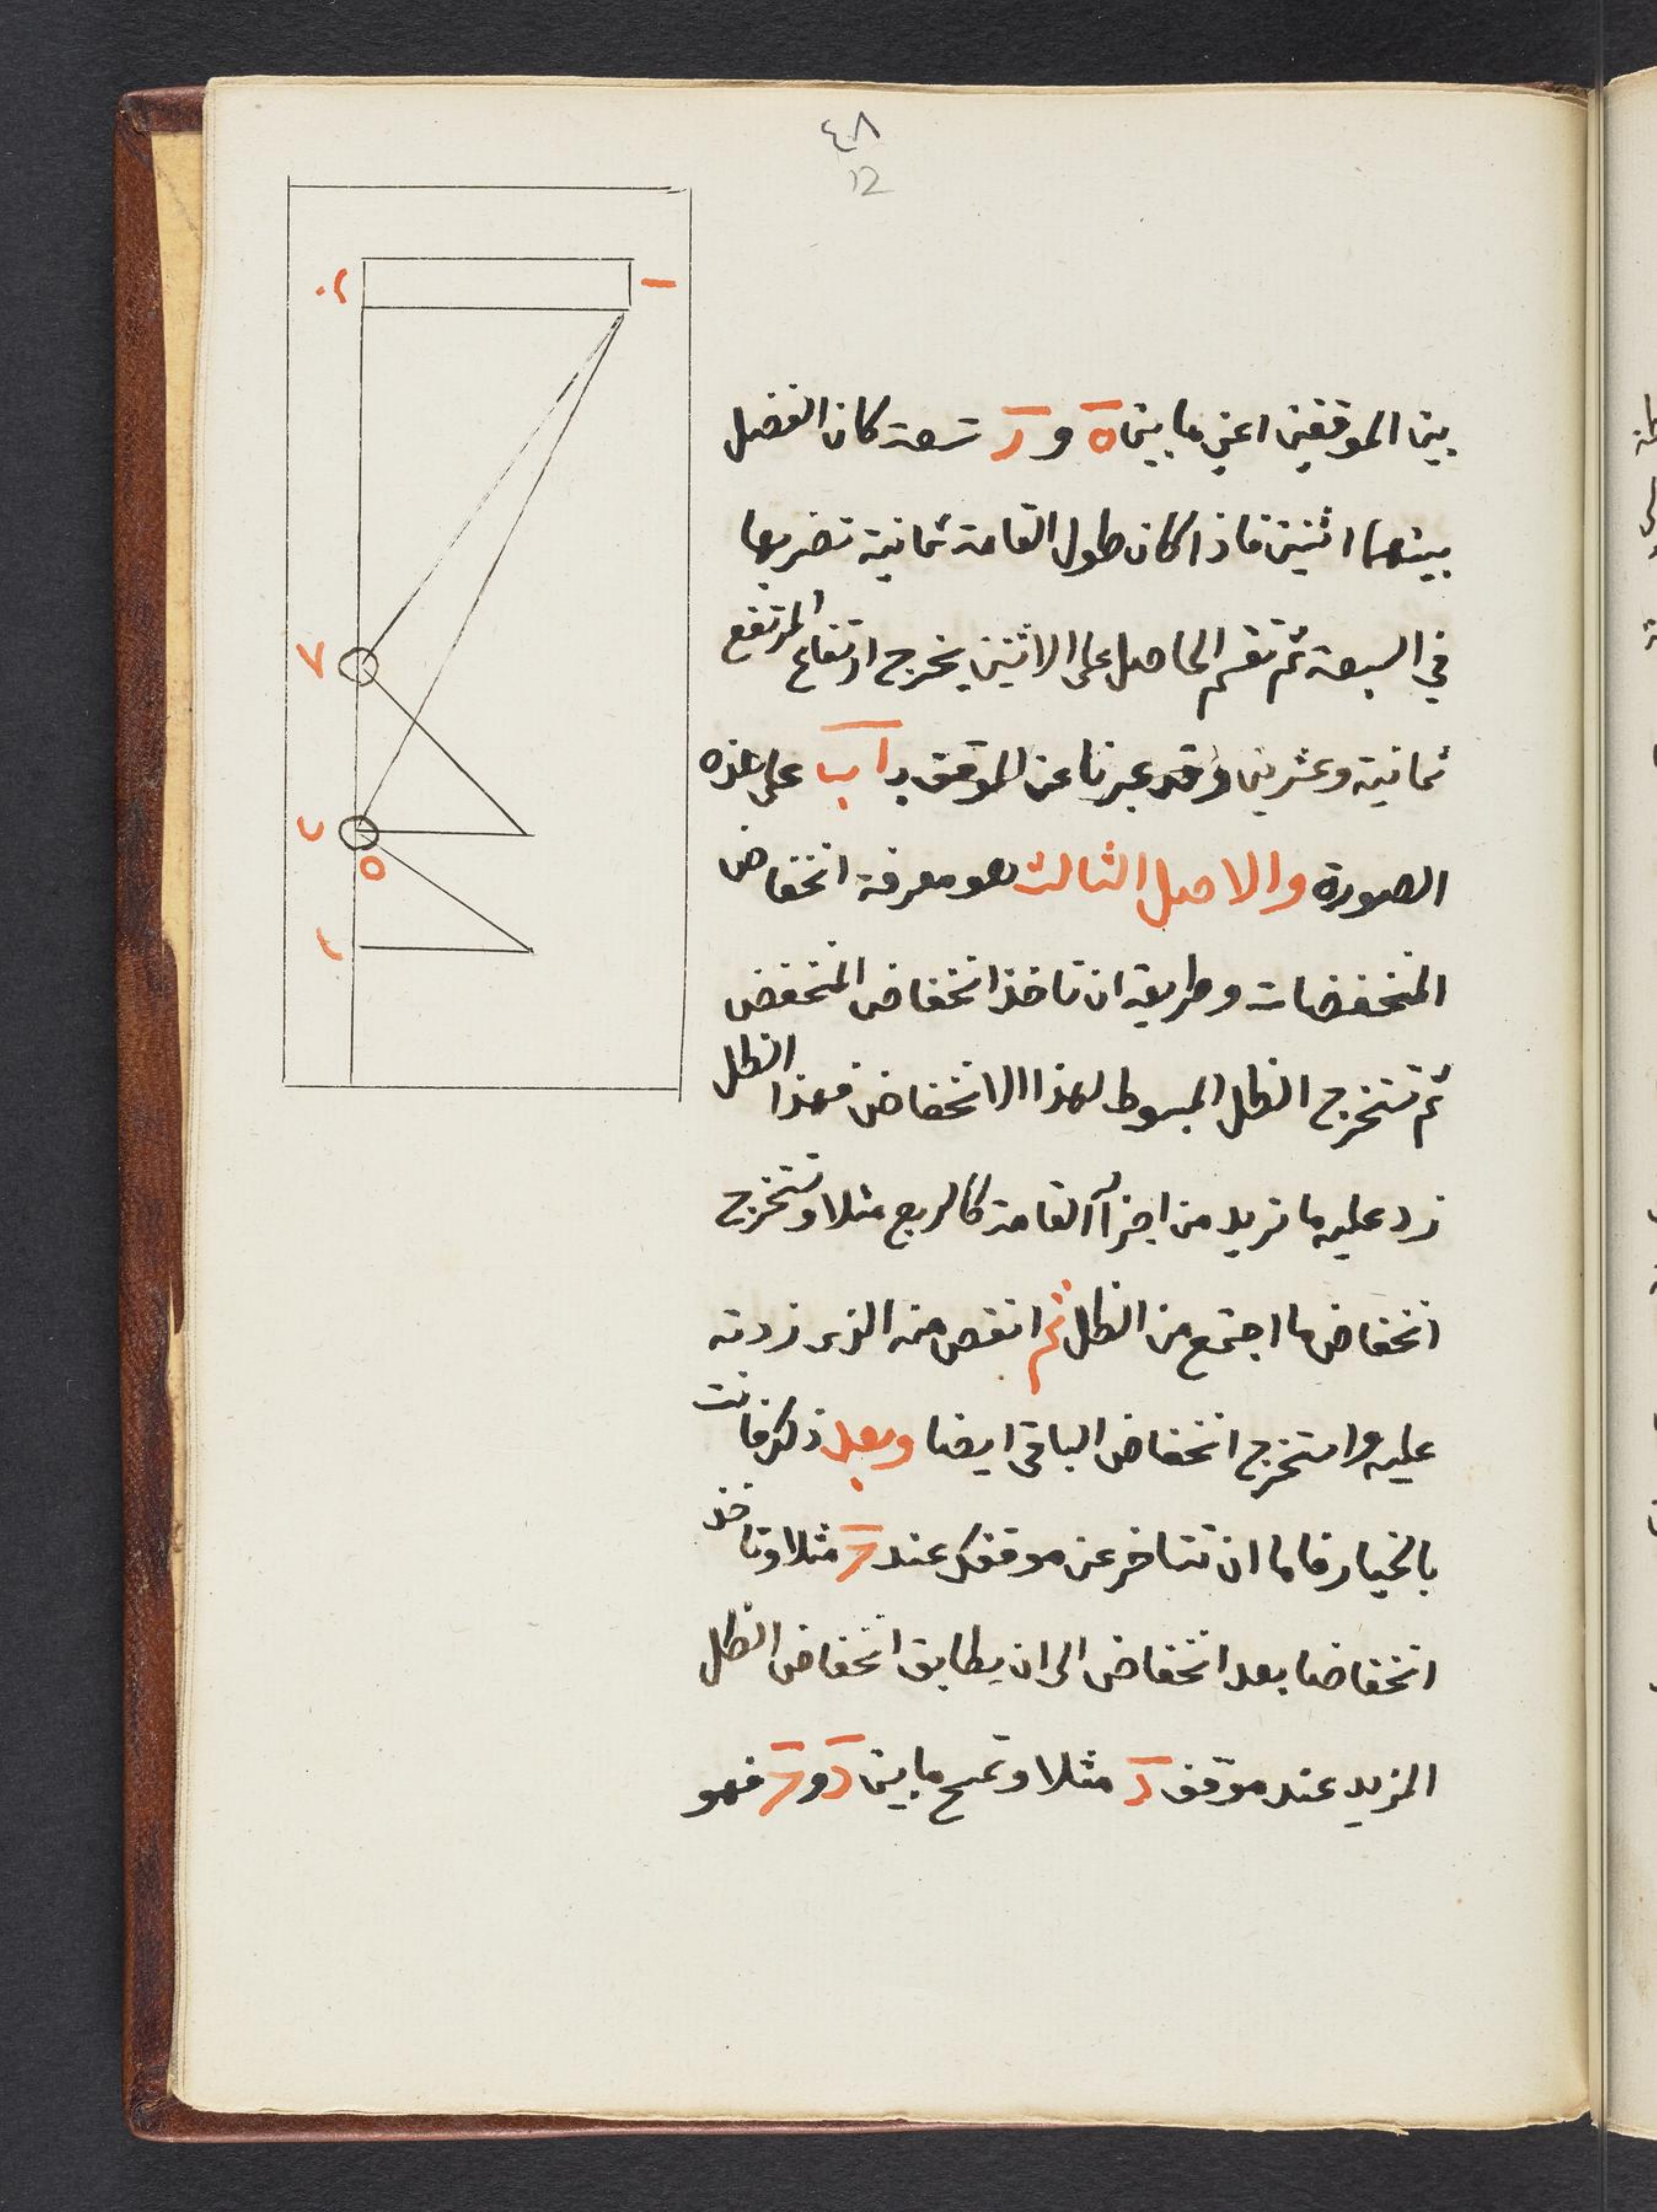 ٤٨
12
بين الموقفين اعني ما بين ه و ر سبعة كان الفضل
بينهما اثنين فاذا كان طول القامة ثمانية تضربها
في السبعة ثم تقسم الحاصل على الاثنين يخرج ارتفاع المرتفع
ثمانية وعشرين وقد عبرنا عن الموقف بـ ا ب على هذه
الصورة والاصل الثالث هو معرفة انخفاض
المنخفضات وطريقه ان تاخذ انخفاض المنخفض
ثم تستخرج الظل المبسوط لهذا الانخفاض فهذا الظل
زد عليه ما تريد من اجزآ القامة كالربع مثلا وتستخرج
انخفاض ما اجتمع من الظل ثم انقص منه الذى زدته
عليه واستخرج انخفاض الباقى ايضا وبعد ذلك فانت
بالخيار فاما ان تتاخر عن موقفك عند مثلا وتاخذ
انخفاضا بعد انخفاض الى ان يطابق انخفاض الظل
المزيد عند موقف د مثلا وتمسح ما بين د و فهو